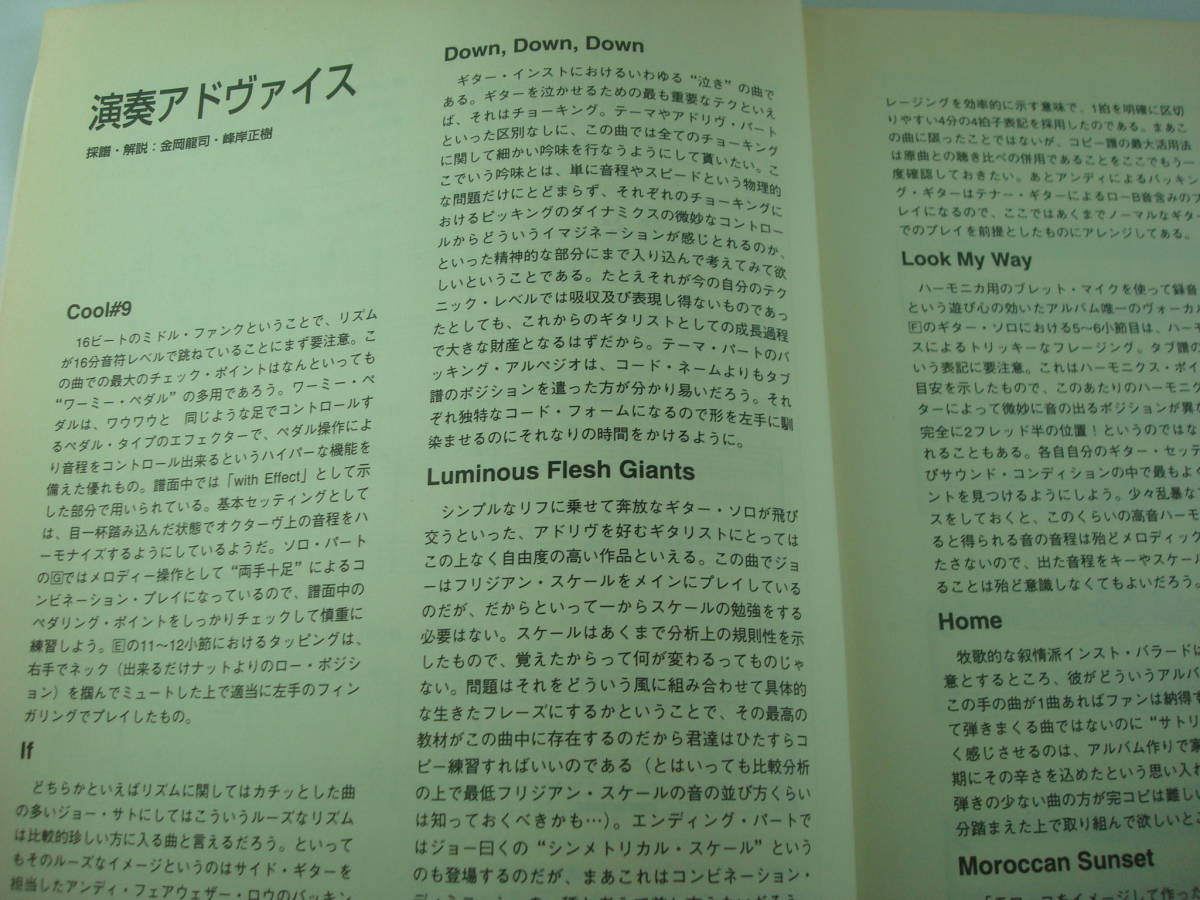 演奏アドヴァイス
採譜・解説：金岡龍司・峰岸正樹
Cool#9
16ビートのミドル・ファンクということで、リズム
が16分音符レベルで跳ねていることにまず要注意。こ
の曲での最大のチェック・ポイントはなんといっても
“ワーミー・ペダル”の多用であろう。ワーミー・ペ
ダルは、ワウワウと　同じような足でコントロールす
るペダル・タイプのエフェクターで、ペダル操作によ
り音程をコントロール出来るというハイパーな機能を
備えた優れもの。譜面中では「with Effect」として示
した部分で用いられている。基本セッティングとして
は、目一杯踏み込んだ状態でオクターヴ上の音程をハ
ーモナイズするようにしているようだ。ソロ・パート
の🄶ではメロディー操作として“両手十足”によるコ
ンビネーション・プレイになっているので、譜面中の
ペダリング・ポイントをしっかりチェックして慎重に
練習しよう。🄴の11〜12小節におけるタッピングは、
右手でネック（出来るだけナットよりのロー・ポジシ
ョン）を掴んでミュートした上で適当に左手のフィン
ガリングでプレイしたもの。
If
どちらかといえばリズムに関してはカチッとした曲
の多いジョー・サトにしてはこういうルーズなリズム
は比較的珍しい方に入る曲と言えるだろう。といって
もそのルーズなイメージというのはサイド・ギターを
担当したアンディ・フェアウェザー・ロウのバッキン
Down, Down, Down
ギター・インストにおけるいわゆる“泣き”の曲で
ある。ギターを泣かせるための最も重要なテクといえ
ば、それはチョーキング。テーマやアドリヴ・パート
といった区別なしに、この曲では全てのチョーキング
に関して細かい吟味を行なうようにして貰いたい。こ
こでいう吟味とは、単に音程やスピードという物理的
な問題だけにとどまらず、それぞれのチョーキングに
おけるピッキングのダイナミクスの微妙なコントロー
ルからどういうイマジネーションが感じとれるのか、
といった精神的な部分にまで入り込んで考えてみて欲
しいということである。たとえそれが今の自分のテク
ニック・レベルでは吸収及び表現し得ないものであっ
たとしても、これからのギタリストとしての成長過程
で大きな財産となるはずだから。テーマ・パートのバ
ッキング・アルペジオは、コード・ネームよりもタブ
譜のポジションを遣った方が分かり易いだろう。それ
ぞれ独特なコード・フォームになるので形を左手に馴
染ませるのにそれなりの時間をかけるように。
Luminous Flesh Giants
シンプルなリフに乗せて奔放なギター・ソロが飛び
交うといった、アドリヴを好むギタリストにとっては
この上なく自由度の高い作品といえる。この曲でジョ
ーはフリジアン・スケールをメインにプレイしている
のだが、だからといって一からスケールの勉強をする
必要はない。スケールはあくまで分析上の規則性を示
したもので、覚えたからって何が変わるってものじゃ
ない。問題はそれをどういう風に組み合わせて具体的
な生きたフレーズにするかということで、その最高の
教材がこの曲中に存在するのだから君達はひたすらコ
ピー練習すればいいのである（とはいっても比較分析
の上で最低フリジアン・スケールの音の並び方くらい
は知っておくべきかも…）。エンディング・パートで
はジョー曰くの“シンメトリカル・スケール”という
のも登場するのだが、まあこれはコンビネーション・
レージングを効率的に示す意味で、1拍を明確に区切
りやすい4分の4拍子表記を採用したのである。まあこ
の曲に限ったことではないが、コピー譜の最大活用法
は原曲との聴き比べの併用であることをここでもう一
度確認しておきたい。あとアンディによるバッキン
グ・ギターはテナー・ギターによるローB音含みのプ
レイになるので、ここではあくまでノーマルなギタ
でのプレイを前提としたものにアレンジしてある。
Look My Way
ハーモニカ用のブレット・マイクを使って録音
という遊び心の効いたアルバム唯一のヴォーカル
🄵のギター・ソロにおける5〜6小節目は、ハー
スによるトリッキーなフレージング。タブ譜の
いう表記に要注意。これはハーモニクス・ポイ
目安を示したもので、このあたりのハーモニク
ターによって微妙に音の出るポジションが異な
完全に2フレッド半の位置！というのではな
れることもある。各自自分のギター・セッテ
びサウンド・コンディションの中で最もよく
ントを見つけるようにしよう。少々乱暴な
スをしておくと、このくらいの高音ハーモ
ると得られる音の音程は殆どメロディック
たさないので、出た音程をキーやスケール
ることは殆ど意識しなくてもよいだろう。
Home
牧歌的な叙情派インスト・バラードに
意とするところ、彼がどういうアルバ
この手の曲が1曲あればファンは納得す
て弾きまくる曲ではないのに“サトリ
く感じさせるのは、アルバム作りで家
期にその辛さを込めたという思い入れ
弾きの少ない曲の方が完コピは難しい
分踏まえた上で取り組んで欲しいとこ
Moroccan Sunset
「モロッコをイメージして作った